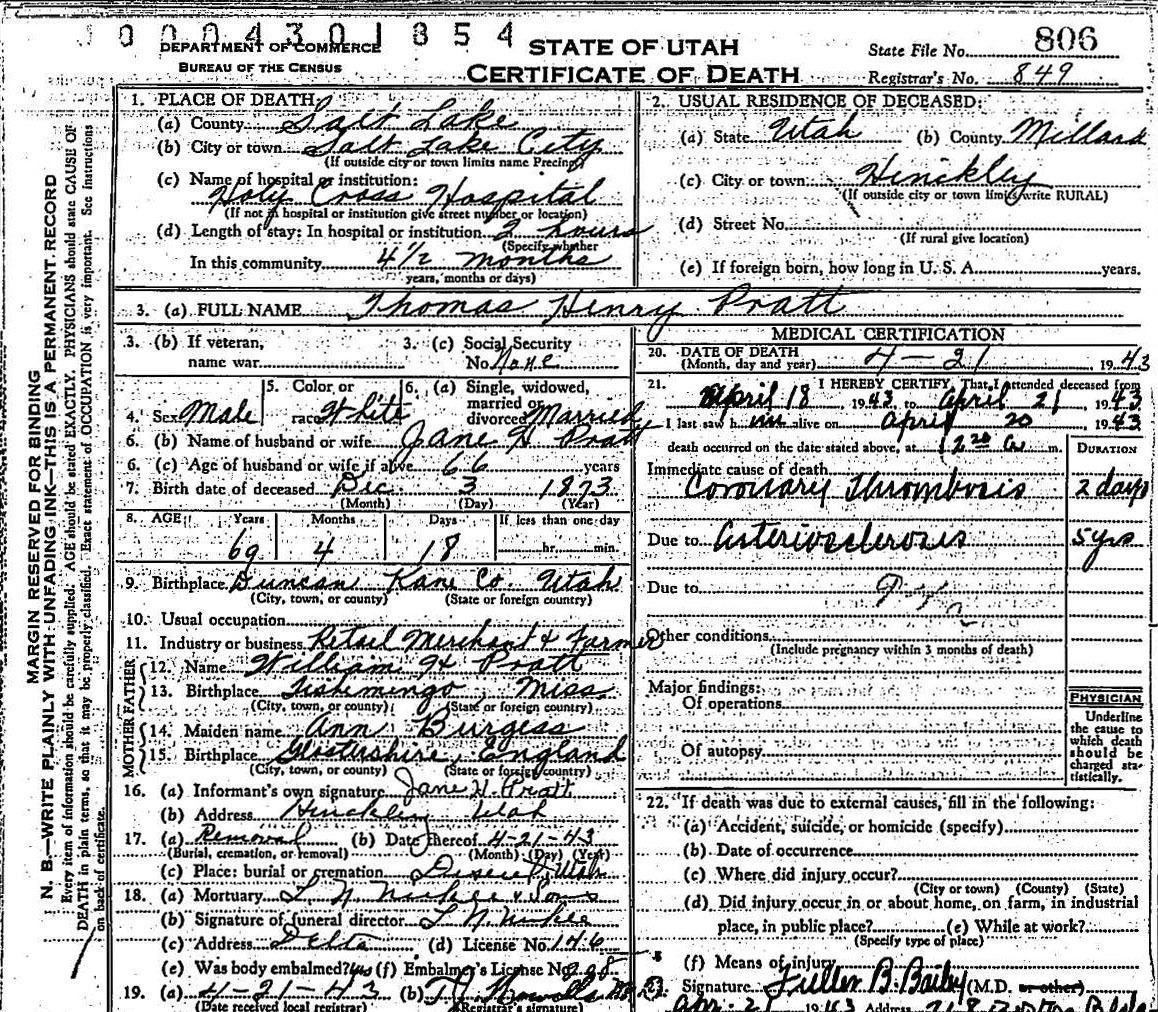 0004301854
DEPARTMENT OF COMMERCE
BUREAU OF THE CENSUS
STATE OF UTAH
CERTIFICATE OF DEATH
State File No. 806
Registrar's No. 849
MARGIN RESERVED FOR BINDING
N. B.—WRITE PLAINLY WITH UNFADING INK—THIS IS A PERMANENT RECORD
Every item of information should be carefully supplied. AGE should be stated EXACTLY. PHYSICIANS should state CAUSE OF
DEATH in plain terms, so that it may be properly classified. Exact statement of OCCUPATION is very important. See instructions
on back of certificate.
1. PLACE OF DEATH:
(a) County Salt Lake
(b) City or town Salt Lake City
(If outside city or town limits name Precinct)
(c) Name of hospital or institution:
Holy Cross Hospital
(If not in hospital or institution give street number or location)
(d) Length of stay: In hospital or institution 2 hours
(Specify whether
In this community 4 1/2 months
years, months or days)
2. USUAL RESIDENCE OF DECEASED:
(a) State Utah (b) County Millard
(c) City or town Hinckley
(If outside city or town limits write RURAL)
(d) Street No.
(If rural give location)
(e) If foreign born, how long in U. S. A. years.
3. (a) FULL NAME Thomas Henry Pratt
3. (b) If veteran,
name war
3. (c) Social Security
No. None
4. Sex Male
5. Color or
race White
6. (a) Single, widowed,
married or
divorced Married
6. (b) Name of husband or wife Jane H Pratt
6. (c) Age of husband or wife if alive 66 years
7. Birth date of deceased Dec. 3 1873
(Month) (Day) (Year)
8. AGE Years Months Days If less than one day
69 4 18 hr. min.
9. Birthplace Duncan Kane Co. Utah
(City, town, or county) (State or foreign country)
10. Usual occupation
11. Industry or business Retail Merchant & Farmer
FATHER
12. Name William H Pratt
13. Birthplace Tishemingo, Miss
(City, town, or county) (State or foreign country)
MOTHER
14. Maiden name Ann Burgess
15. Birthplace Glostershire, England
(City, town, or county) (State or foreign country)
16. (a) Informant's own signature Jane H Pratt
(b) Address Hinckley Utah
17. (a) Removal (b) Date thereof 4-21-43
(Burial, cremation, or removal) (Month) (Day) (Year)
(c) Place: burial or cremation Utah
18. (a) Mortuary L. N. & Sons
(b) Signature of funeral director L N
(c) Address Delta (d) License No. 146
(e) Was body embalmed? yes (f) Embalmer's License No.
19. (a) 4-21-43 (b)
(Date received local registrar) (Registrar's signature)
MEDICAL CERTIFICATION
20. DATE OF DEATH
(Month, day and year) 4-21 1943
21. I HEREBY CERTIFY, That I attended deceased from
April 18 1943 to April 21 1943
I last saw him alive on April 20 1943
death occurred on the date stated above, at 12 20 a m.
DURATION
Immediate cause of death
Coronary Thrombosis 2 days
Due to Arteriosclerosis 5 yrs
Due to
Other conditions
(Include pregnancy within 3 months of death)
Major findings:
Of operations
Of autopsy
PHYSICIAN
Underline
the cause to
which death
should be
charged sta-
tistically.
22. If death was due to external causes, fill in the following:
(a) Accident, suicide, or homicide (specify)
(b) Date of occurrence
(c) Where did injury occur?
(City or town) (County) (State)
(d) Did injury occur in or about home, on farm, in industrial
place, in public place? (e) While at work?
(Specify type of place)
(f) Means of injury
23. Signature Fuller B. Bailey (M.D. or other)
Apr. 21 1943 Address